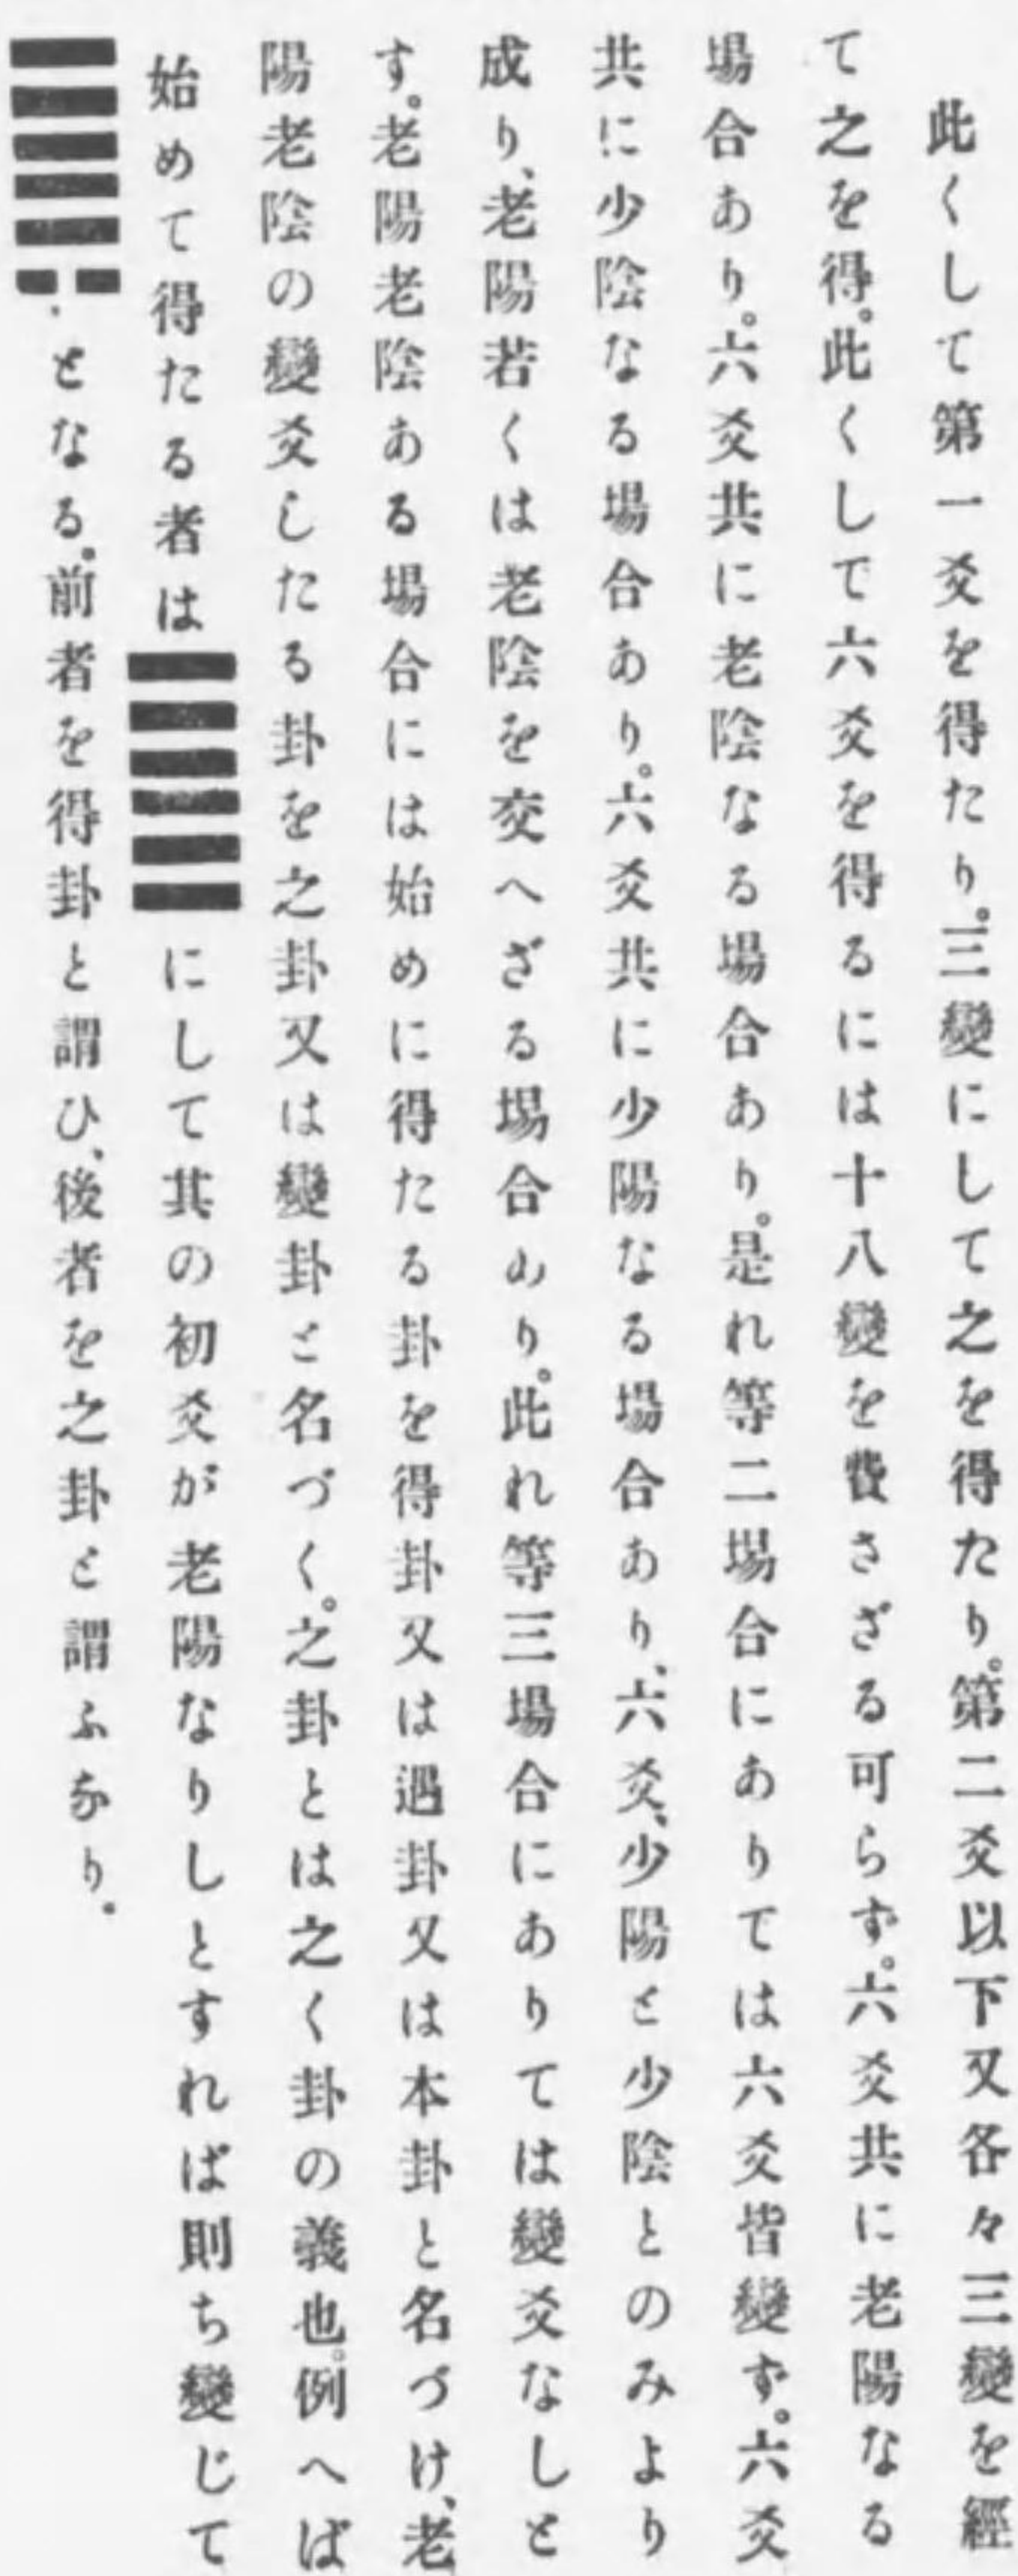 此くして第一爻を得たり。三變にして之を得たり。第二爻以下又各々三變を經
て之を得。此くして六爻を得るには十八變を費さざる可らず。六爻共に老陽なる
場合あり。六爻共に老陰なる場合あり。是れ等二場合にありては六爻皆變ず。六爻
共に少陰なる場合あり。六爻共に少陽なる場合あり、六爻、少陽と少陰とのみより
成り、老陽若くは老陰を交へざる場合あり。此れ等三場合にありては變爻なしと
す。老陽老陰ある場合には始めに得たる卦を得卦又は遇卦又は本卦と名づけ、老
陽老陰の變爻したる卦を之卦又は變卦と名づく。之卦とは之く卦の義也。例へば
始めて得たる者は䷀にして其の初爻が老陽なりしとすれば則ち變じて
䷫となる。前者を得卦と謂ひ、後者を之卦と謂ふなり。